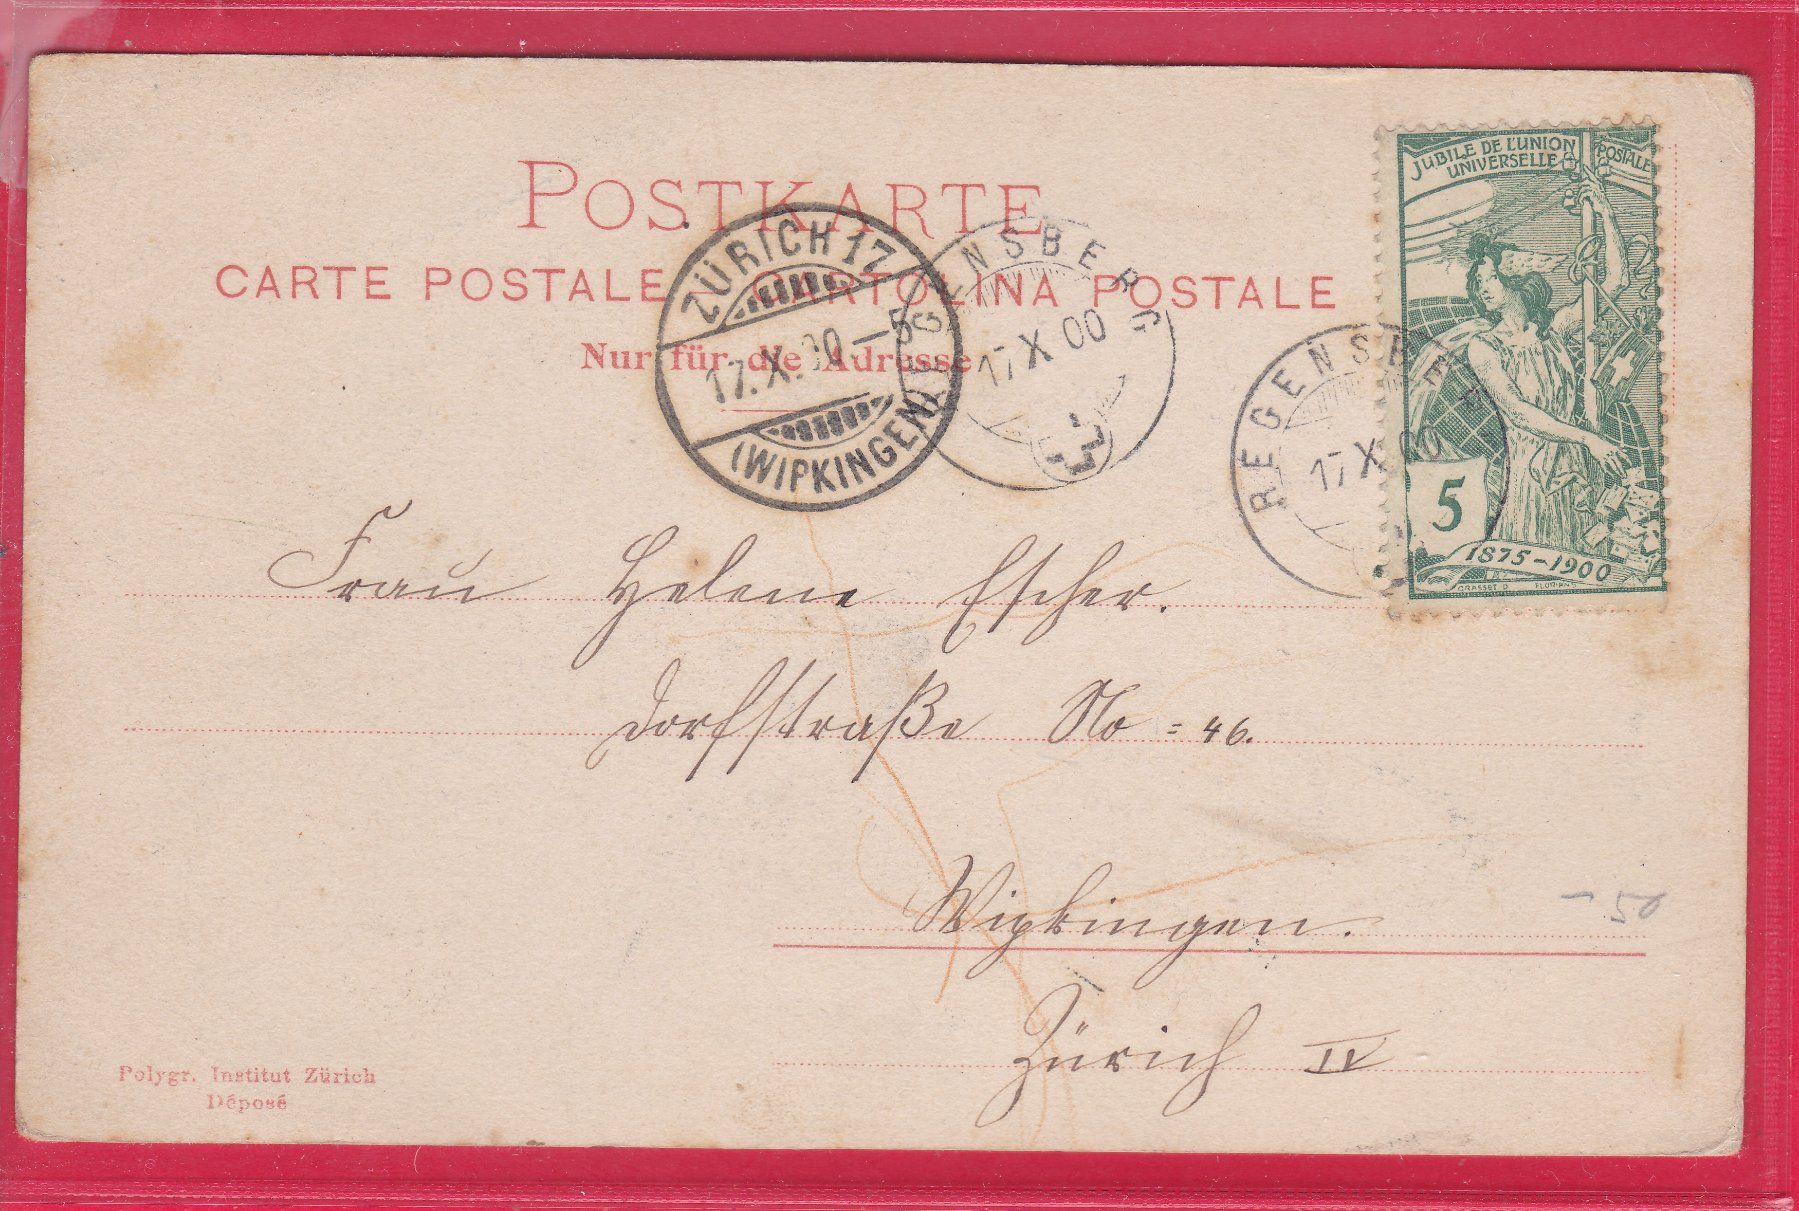 POSTKARTE
CARTE POSTALE CARTOLINA POSTALE
Nur für die Adresse
ZÜRICH 17
17.X.00–5
(WIPKINGEN)
REGENSBERG
17 X 00
REGENSBERG
17 X 00
JUBILE DE L'UNION POSTALE
UNIVERSELLE
5
1875–1900
GRASSET D. FLORIAN
Frau Helene Escher.
Dorfstraße No = 46.
Wipkingen.
– 50
Zürich IV
Polygr. Institut Zürich
Déposé